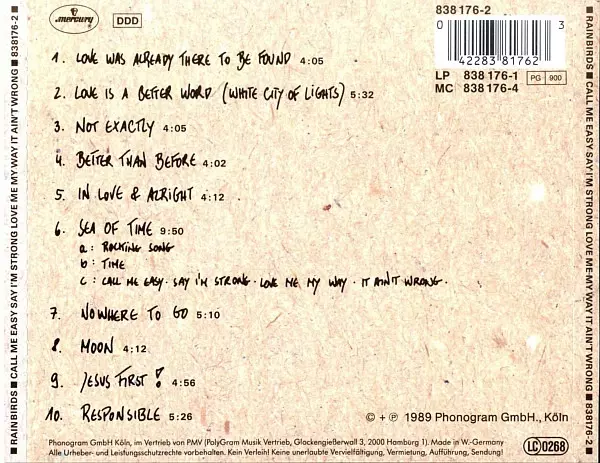 mercury
DDD
838 176-2
0 42283 81762 3
LP 838 176-1
MC 838 176-4
PG 900
1. LOVE WAS ALREADY THERE TO BE FOUND 4:05
2. LOVE IS A BETTER WORD (WHITE CITY OF LIGHTS) 5:32
3. NOT EXACTLY 4:05
4. BETTER THAN BEFORE 4:02
5. IN LOVE & ALRIGHT 4:12
6. SEA OF TIME 9:50
a: ROCKING SONG
b: TIME
c: CALL ME EASY · SAY I'M STRONG · LOVE ME MY WAY · IT AIN'T WRONG·
7. NOWHERE TO GO 5:10
8. MOON 4:12
9. JESUS FIRST! 4:56
10. RESPONSIBLE 5:26
© + ℗ 1989 Phonogram GmbH., Köln
Phonogram GmbH Köln, im Vertrieb von PMV (PolyGram Musik Vertrieb, Glockengießerwall 3, 2000 Hamburg 1). Made in W.-Germany
Alle Urheber- und Leistungsschutzrechte vorbehalten. Kein Verleih! Keine unerlaubte Vervielfältigung, Vermietung, Aufführung, Sendung!
LC 0268
RAINBIRDS ■ CALL ME EASY SAY I'M STRONG LOVE ME MY WAY IT AIN'T WRONG ■ 838 176-2
RAINBIRDS ■ CALL ME EASY SAY I'M STRONG LOVE ME MY WAY IT AIN'T WRONG ■ 838 176-2